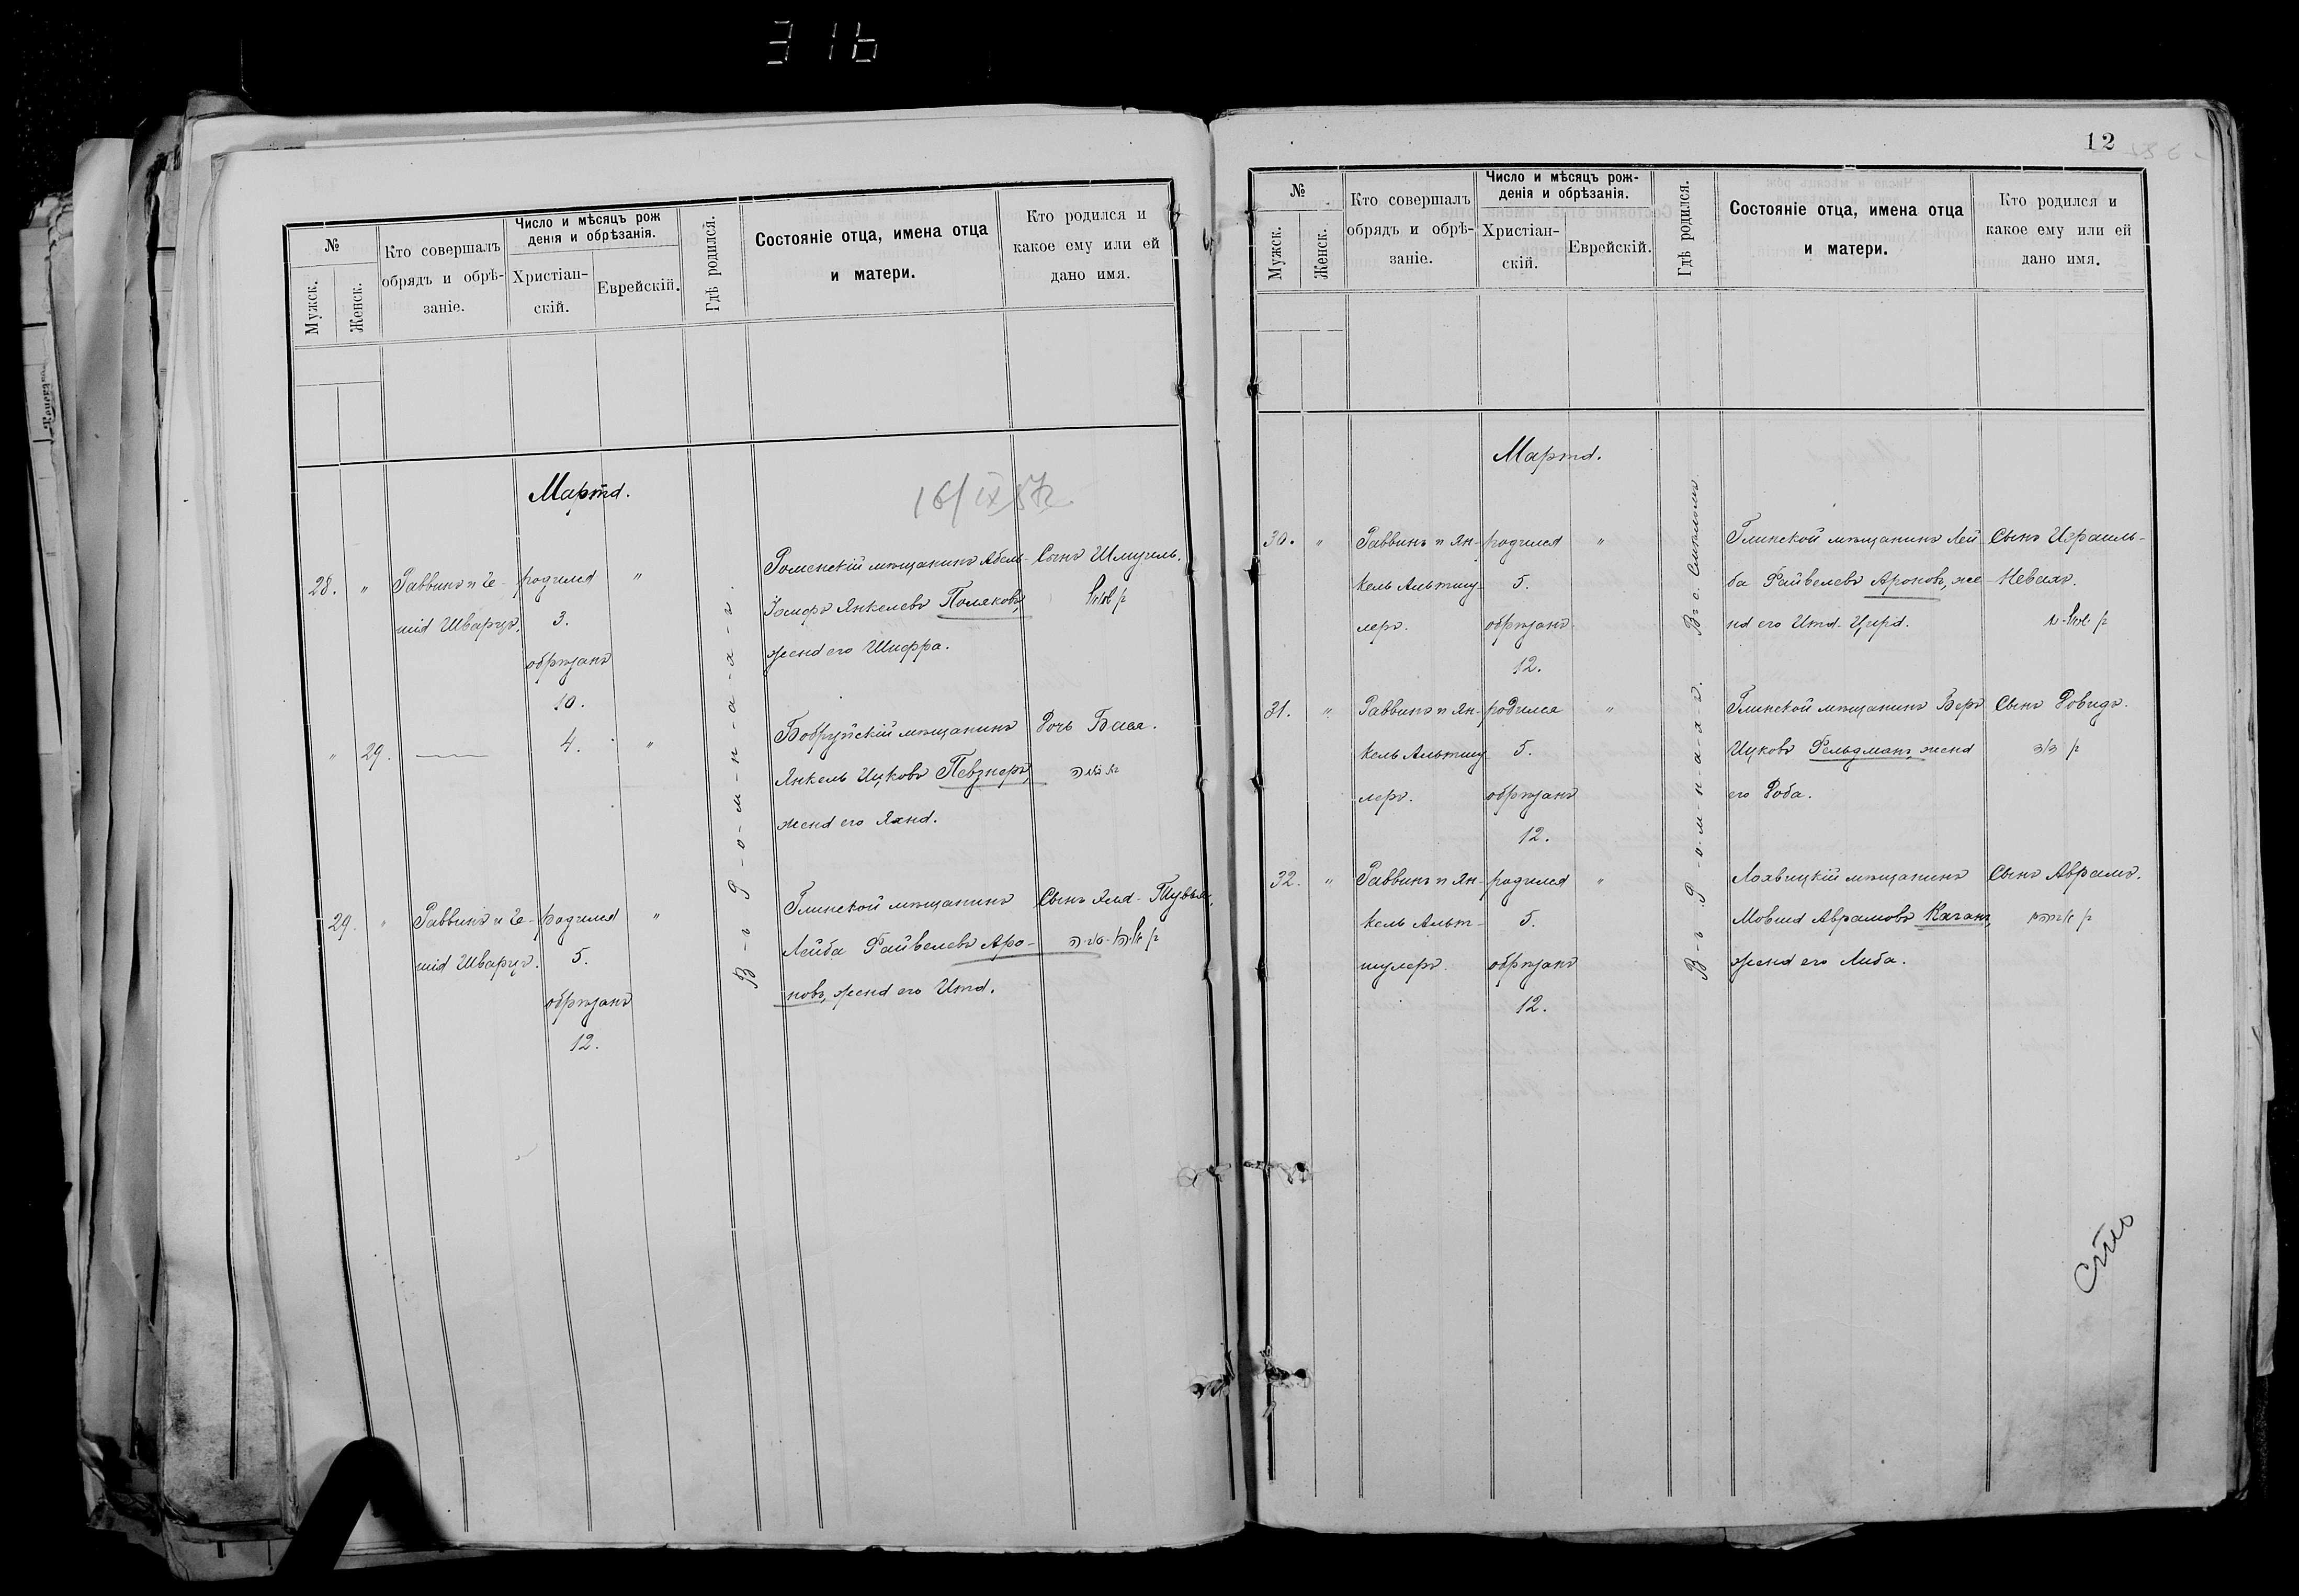 316
№
Мужск.
Женск.
Кто совершалъ
обрядъ и обрѣ-
заніе.
Число и мѣсяцъ рож
денія и обрѣзанія.
Христіан-
скій.
Еврейскій.
Гдѣ родился.
Состояніе отца, имена отца
и матери.
Кто родился и
какое ему или ей
дано имя.
Марта.
28. "
Раввинъ и Іе-
шіа Шварцъ.
родился "
3.
обрѣзанъ
10.
Роменскій мѣщанинъ Абель-
Іосифъ Янкелевъ Поляковъ,
жена его Шифра.
Сынъ Шмуель.
" 29.
4. "
Бобруйскій мѣщанинъ
Янкель Ицковъ Певзнеръ,
жена его Яхна.
Дочь Бася.
29. "
Раввинъ и Іе-
шіа Шварцъ.
родился "
5.
обрѣзанъ
12.
Глинской мѣщанинъ
Лейба Файвелевъ Аро-
новъ, жена его Ита.
Сынъ Тувья.
В-ъ Р-о-м-н-а-х-ъ.
12
№
Мужск.
Женск.
Кто совершалъ
обрядъ и обрѣ-
заніе.
Число и мѣсяцъ рож-
денія и обрѣзанія.
Христіан-
скій.
Еврейскій.
Гдѣ родился.
Состояніе отца, имена отца
и матери.
Кто родился и
какое ему или ей
дано имя.
Марта.
30. "
Раввинъ и Ян-
кель Альтшу-
леръ.
родился "
5.
обрѣзанъ
12.
Въ с.
Глинской мѣщанинъ Лей
ба Файвелевъ Ароновъ, же-
на его Ита-Цира.
Сынъ Израиль-
Невахъ.
31. "
Раввинъ и Ян-
кель Альтшу
леръ.
родился "
5.
обрѣзанъ
12.
Глинской мѣщанинъ Беръ
Ицковъ Фельдманъ, жена
его Доба.
Сынъ Довидъ.
דוד
32. "
Раввинъ и Ян-
кель Альт-
шулеръ.
родился "
5.
обрѣзанъ
12.
Лохвицкій мѣщанинъ
Мовша Аврамовъ Каганъ,
жена его Либа.
Сынъ Аврамъ.
В-ъ Р-о-м-н-а-х-ъ.